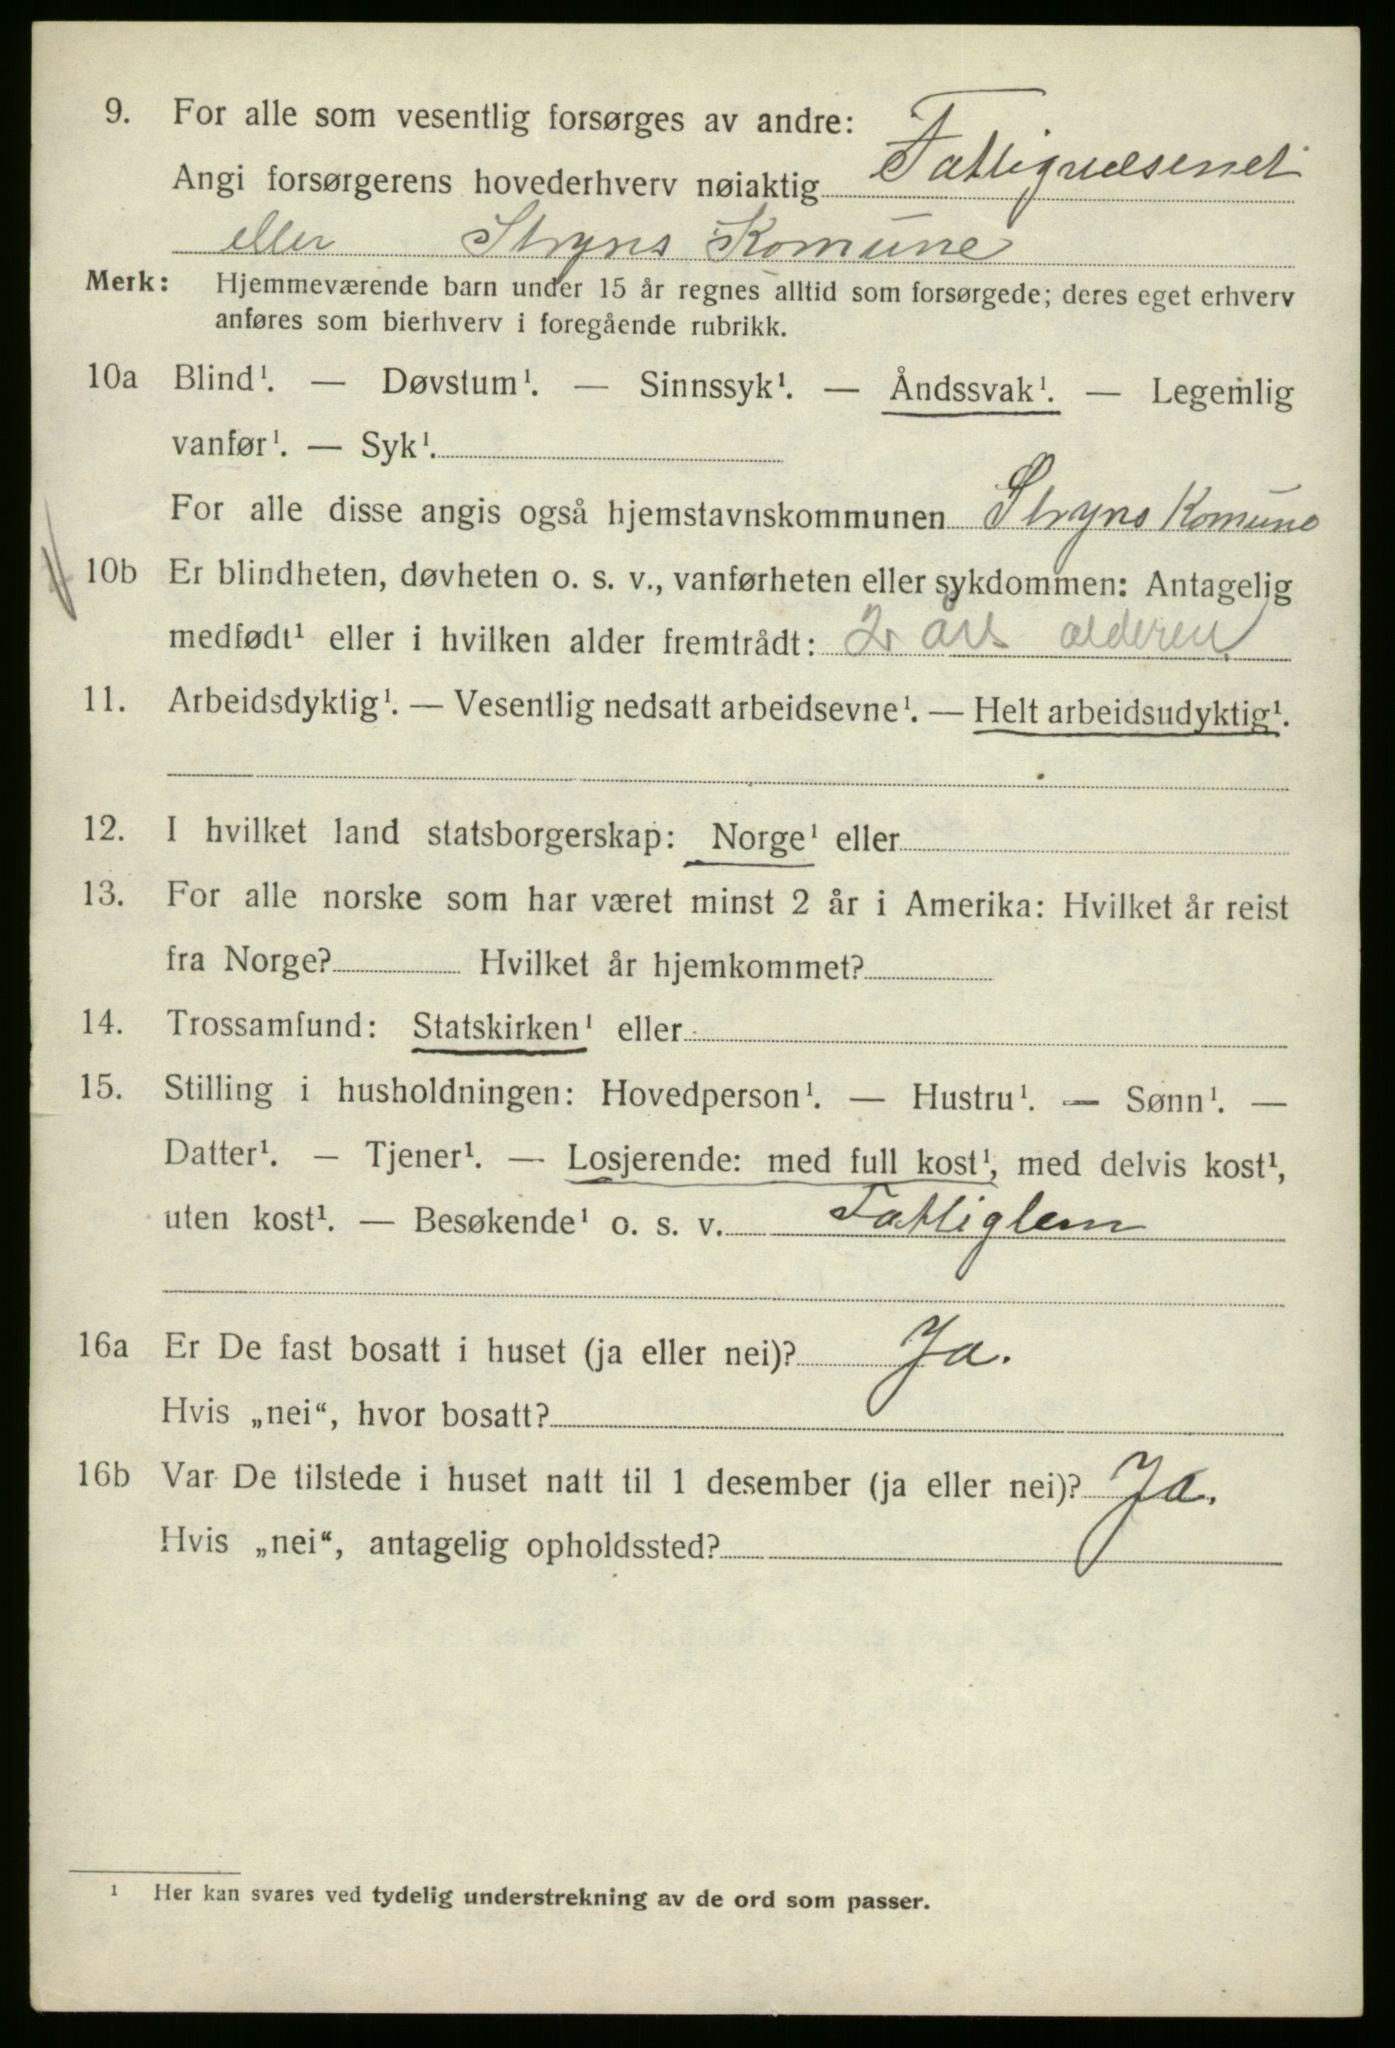 9. For alle som vesentlig forsørges av andre:
Angi forsørgerens hovederhverv nøiaktig Fattigvæsenet
eller Stryns Komune
Merk: Hjemmeværende barn under 15 år regnes alltid som forsørgede; deres eget erhverv
anføres som bierhverv i foregående rubrikk.
10a Blind¹. — Døvstum¹. — Sinnssyk¹. — Åndssvak¹. — Legemlig
vanfør¹. — Syk¹.
For alle disse angis også hjemstavnskommunen Stryns Komune
10b Er blindheten, døvheten o. s. v., vanførheten eller sykdommen: Antagelig
medfødt¹ eller i hvilken alder fremtrådt: 2 års alderen
11. Arbeidsdyktig¹. — Vesentlig nedsatt arbeidsevne¹. — Helt arbeidsudyktig¹.
12. I hvilket land statsborgerskap: Norge¹ eller
13. For alle norske som har været minst 2 år i Amerika: Hvilket år reist
fra Norge? Hvilket år hjemkommet?
14. Trossamfund: Statskirken¹ eller
15. Stilling i husholdningen: Hovedperson¹. — Hustru¹. — Sønn¹. —
Datter¹. — Tjener¹. — Losjerende: med full kost¹, med delvis kost¹,
uten kost¹. — Besøkende¹ o. s. v. Fattiglem
16a Er De fast bosatt i huset (ja eller nei)? Ja.
Hvis „nei“, hvor bosatt?
16b Var De tilstede i huset natt til 1 desember (ja eller nei)? Ja.
Hvis „nei“, antagelig opholdssted?
¹ Her kan svares ved tydelig understrekning av de ord som passer.